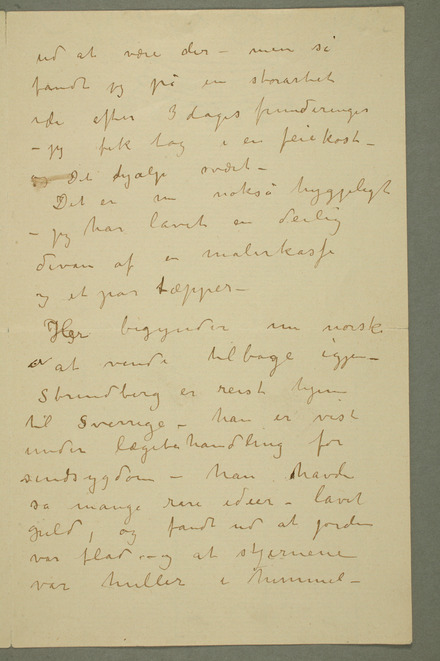 ud at være der – men så
fandt jg på en storartet
ide efter 3 dages funderinger
– jg fik tag i en feiekost –
og det hjalp svært –
Det er nu nokså hyggeligt
– jg har lavet en deilig
divan af en malerkasse
og et par tæpper –
Her begynder nu norske
at vende tilbage igjen –
Strindberg er reist hjem
til Sverrige – han er vist
under lægebehandling for
sindsygdom – han havde
sa mange rare ideer – lavet
guld, og fandt ud at jorden
var flad – og at stjernene
var huller i himmel –